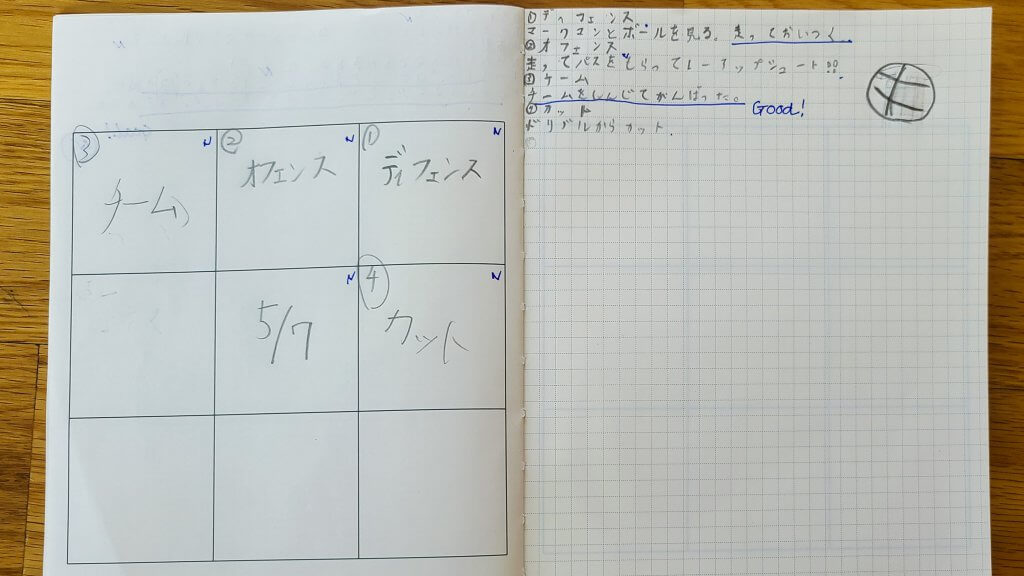 ③ N
チーム
② N
オフェンス
① N
ディフェンス
N
5/7
④ N
カット
①ディフェンス
マークマンとボールを見る。走っておいつく
②オフェンス
走ってパスをもらってレーアップシュート!!
③チーム
チームをしんじてがんばった。
Good!
④カット
ドリブルからカット.